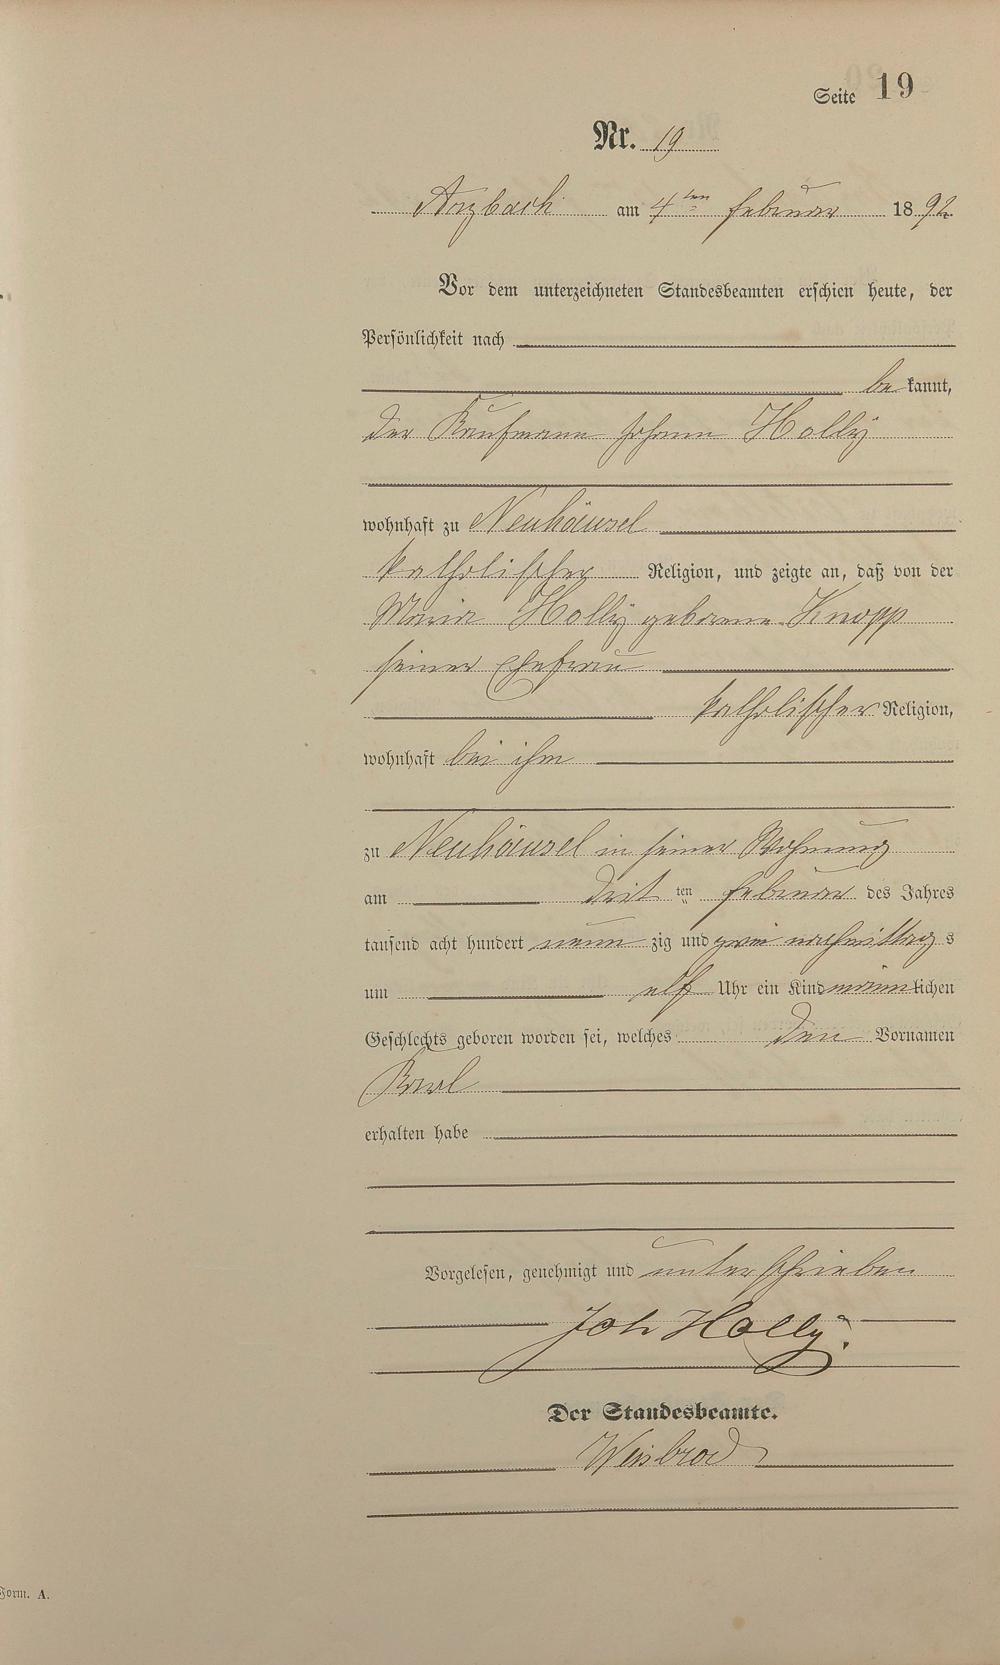 Seite 19
Nr. 19
Arzbach am 4ten Februar 1892
Vor dem unterzeichneten Standesbeamten erschien heute, der
Persönlichkeit nach
bekannt,
der Kaufmann Johann Holly
wohnhaft zu Neuhäusel
katholischer Religion, und zeigte an, daß von der
Maria Holly geborene Knopp
seiner Ehefrau
katholischer Religion,
wohnhaft bei ihm
zu Neuhäusel in seiner Wohnung
am dritten Februar des Jahres
tausend acht hundert neunzig und zwei nachmittags
um elf Uhr ein Kind männlichen
Geschlechts geboren worden sei, welches den Vornamen
Karl
erhalten habe
Vorgelesen, genehmigt und unterschrieben
Joh Holly.
Der Standesbeamte.
Weisbrod
Form. A.